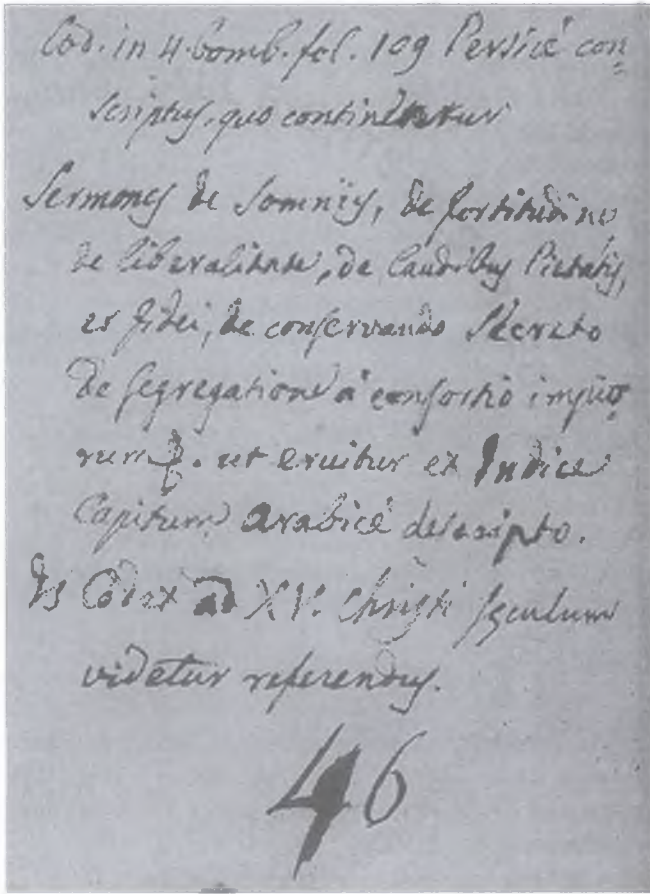 Cod. in 4. bomb. fol. 109 Persicè con=
scriptus, quo continentur
Sermones de Somniis, de fortitudine
de liberalitate, de Laudibus Pietatis,
et fidei, de conservando Secreto
De segregatione à consortio impio=
rum &. ut eruitur ex Indice
Capitum Arabicè descripto.
Is Codex ad XV. Christi sęculum
videtur referendus.
46